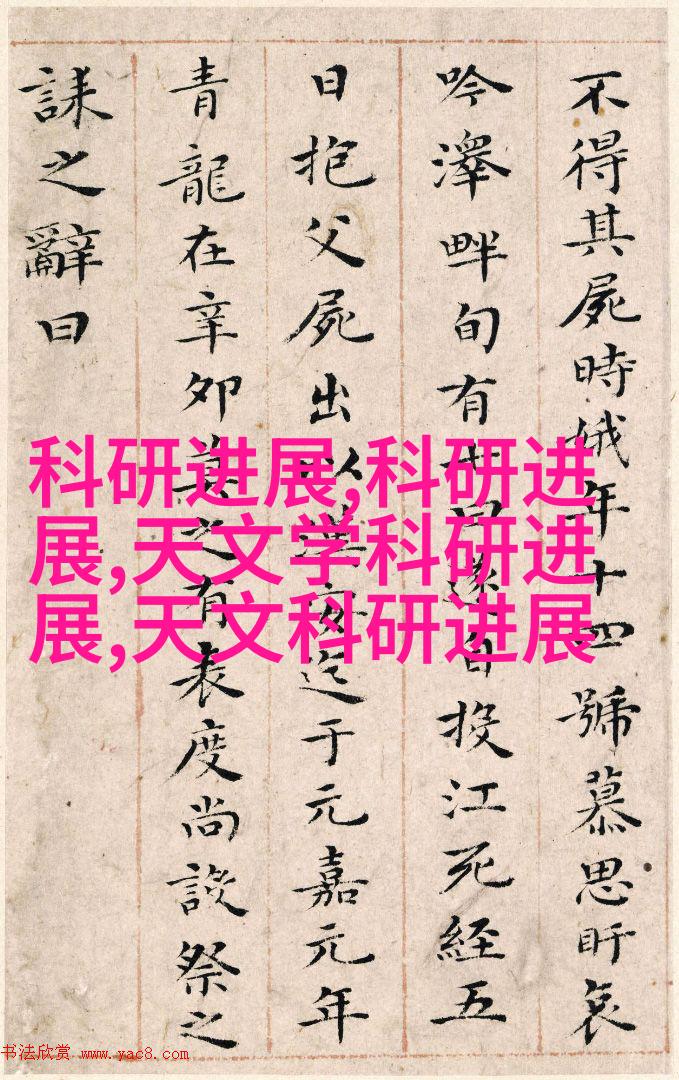 不得其屍時娥年十四號慕思盱哀
吟澤畔旬有七日遂自投江死經五
日抱父屍出以漢安迄于元嘉元年
青龍在辛卯莫之有表度尚設祭之
誄之辭曰
科研进展,科研进
展,天文学科研进
展,天文科研进展
书法欣赏 www.yac8.com